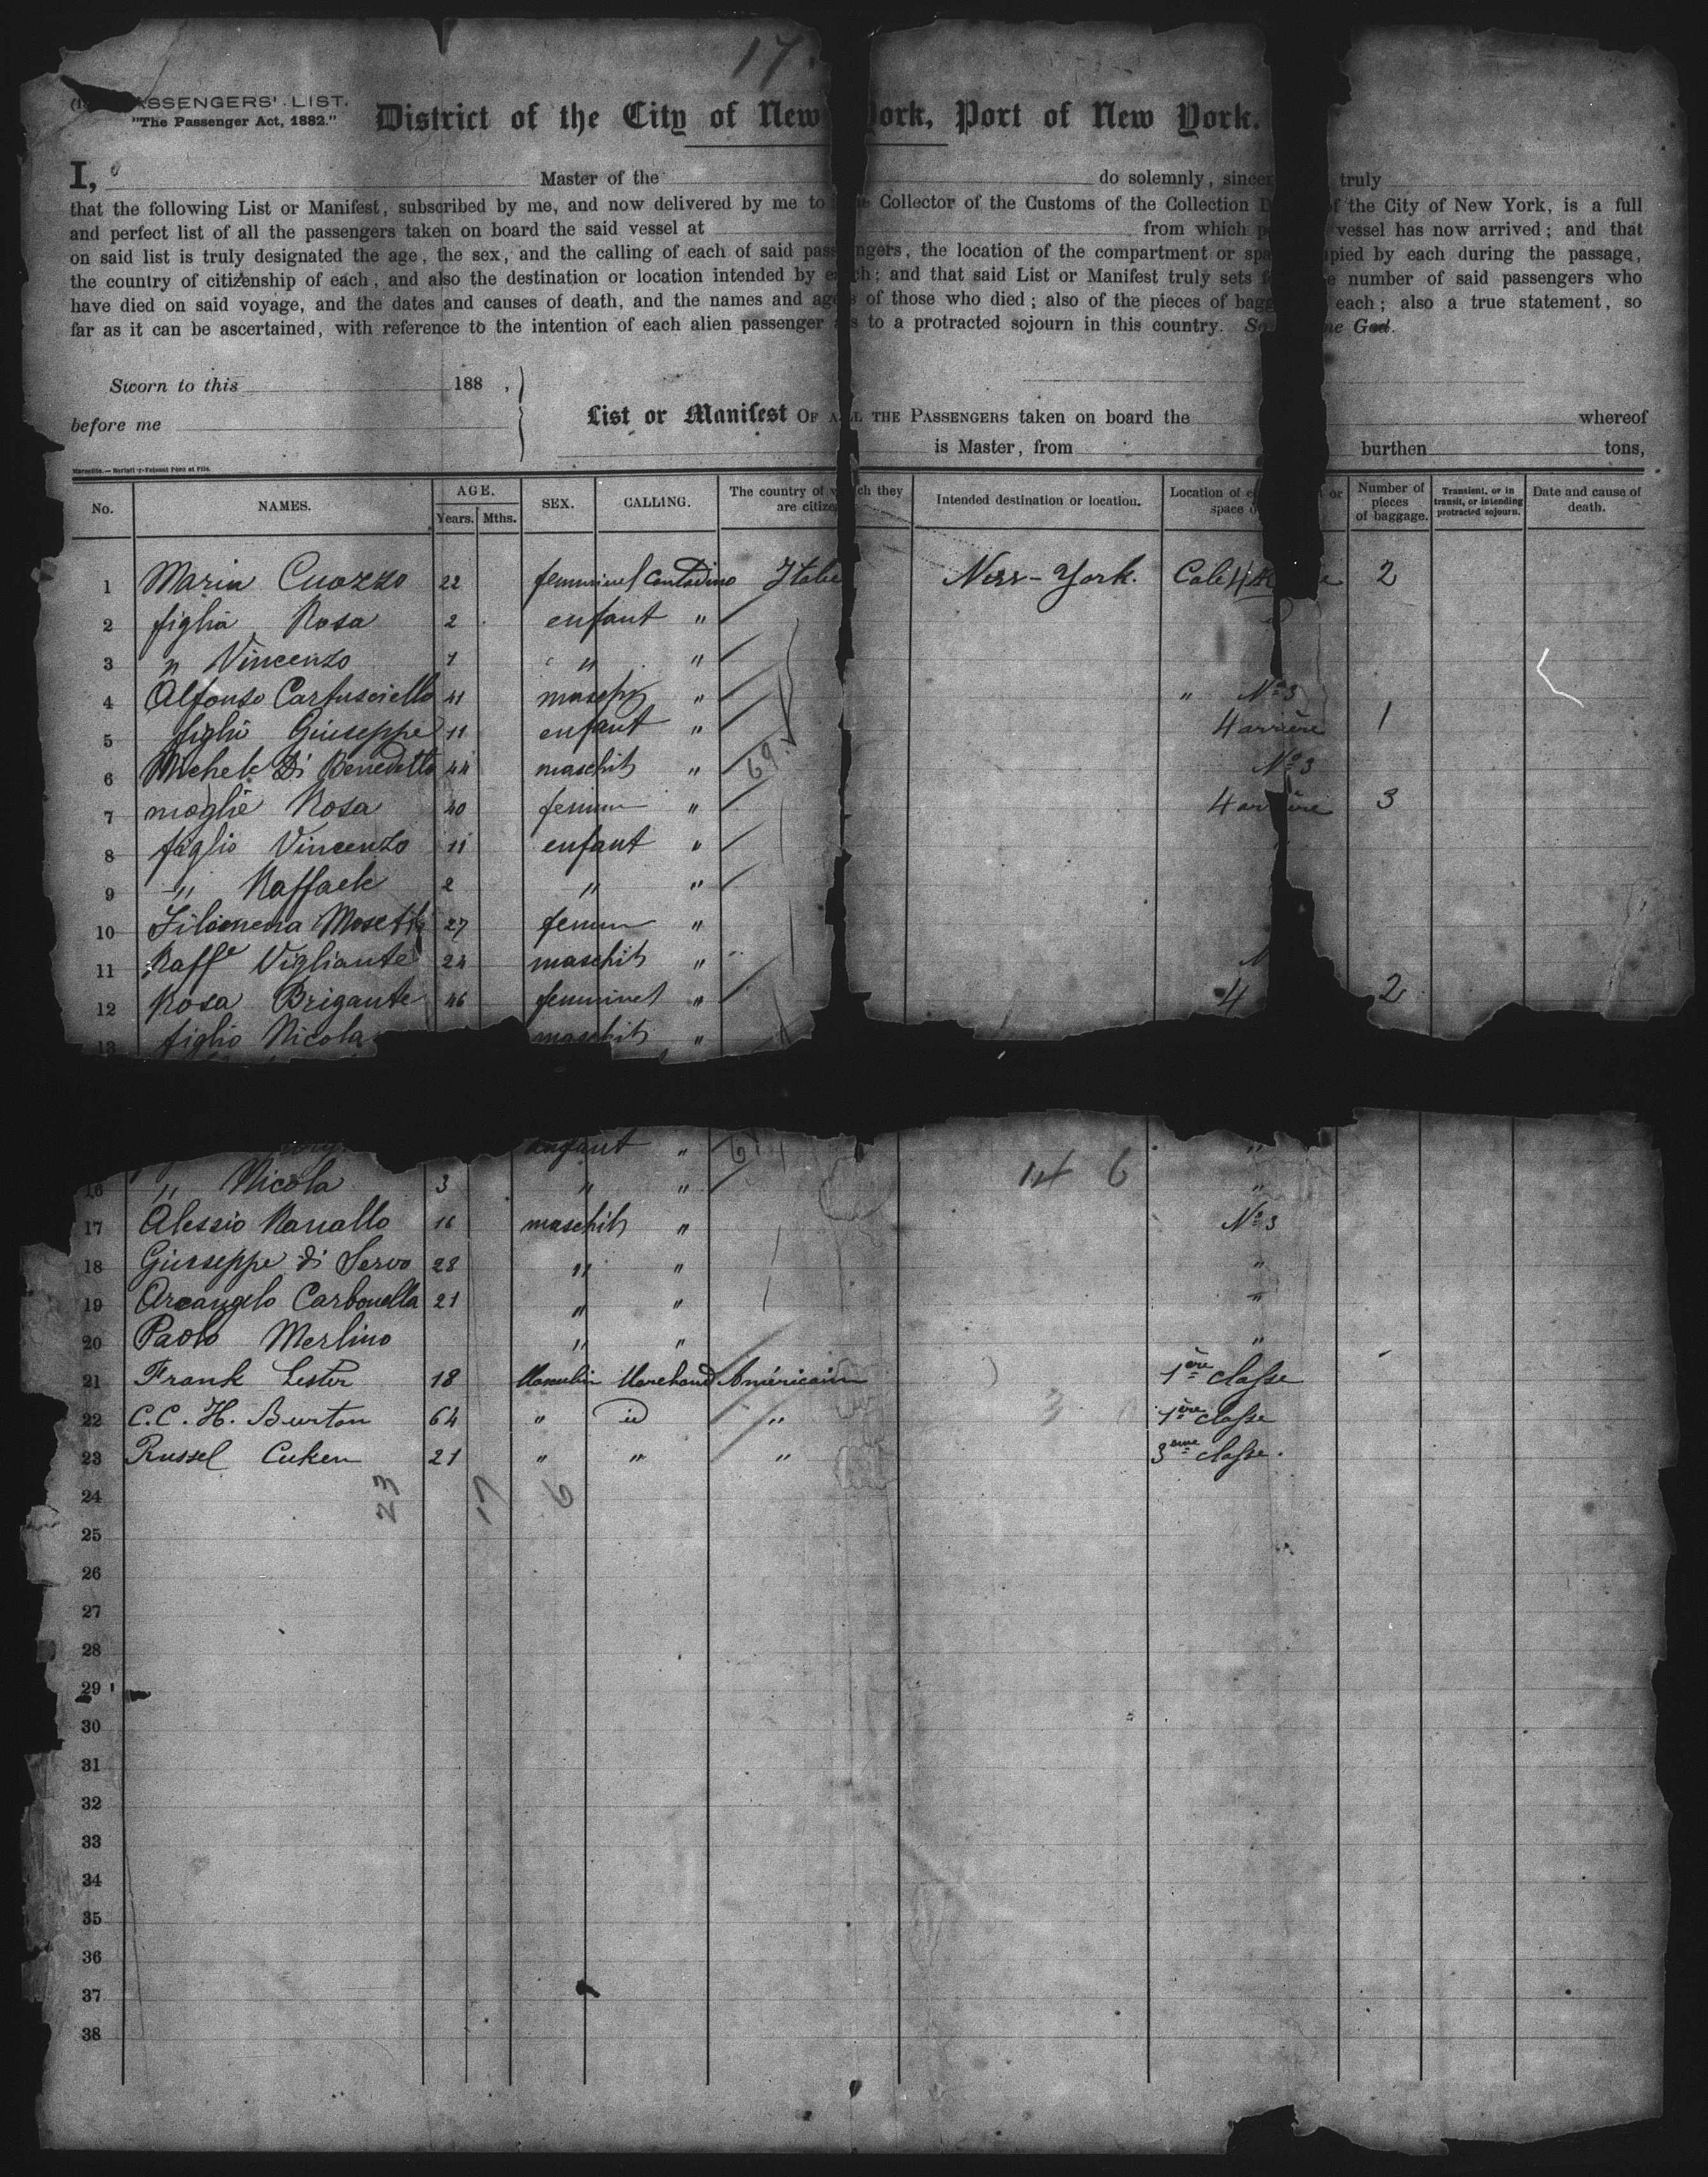 17
PASSENGERS' LIST.
"The Passenger Act, 1882."
District of the City of New York, Port of New York.
I, Master of the do solemnly, sincer truly
that the following List or Manifest, subscribed by me, and now delivered by me to Collector of the Customs of the Collection D of the City of New York, is a full
and perfect list of all the passengers taken on board the said vessel at from which vessel has now arrived; and that
on said list is truly designated the age, the sex, and the calling of each of said passengers, the location of the compartment or spa upied by each during the passage,
the country of citizenship of each, and also the destination or location intended by each; and that said List or Manifest truly sets number of said passengers who
have died on said voyage, and the dates and causes of death, and the names and ages of those who died; also of the pieces of bagg each; also a true statement, so
far as it can be ascertained, with reference to the intention of each alien passenger as to a protracted sojourn in this country. So me God.
Sworn to this 188 ,
before me
List or Manifest OF ALL THE PASSENGERS taken on board the whereof
is Master, from burthen tons,
No. NAMES. AGE. Years. Mths. SEX. CALLING. The country of which they are citize Intended destination or location. Location of or space Number of pieces of baggage. Transient, or in transit, or intending protracted sojourn. Date and cause of death.
1 Maria Cuozzo 22 Contadino New-York. 2
2 figlia Rosa 2 enfant "
3 " Vincenzo " "
4 Alfonso Cartusciello 41 maschil " " No 3
5 figlio Giuseppe 11 enfant " 4 arrière 1
6 Michele Di Benedetto 44 maschil " 69 No 3
7 moglie Rosa 40 femm " 4 arrière 3
8 figlio Vincenzo 11 enfant "
9 " Raffaele 2 " "
10 Filomena 27 femm "
11 Raffe Vigliante 24 maschil "
12 Rosa Brigante 46 femminel " 4 2
13 figlio Nicola maschil "
enfant " "
16 " Nicola 3 " " 14 6 "
17 Alessio Ranallo 16 maschil " No 3
18 Giuseppe di Servo 28 " " "
19 Arcangelo Carbonella 21 " " "
20 Paolo Merlino " " "
21 Frank Lester 18 Masculin Marchand Américain 1ère classe
22 C.C.H. Burton 64 " id " 1ère classe
23 Russel Cuken 21 " " " 3eme classe.
24 23 17 6
25
26
27
28
29
30
31
32
33
34
35
36
37
38